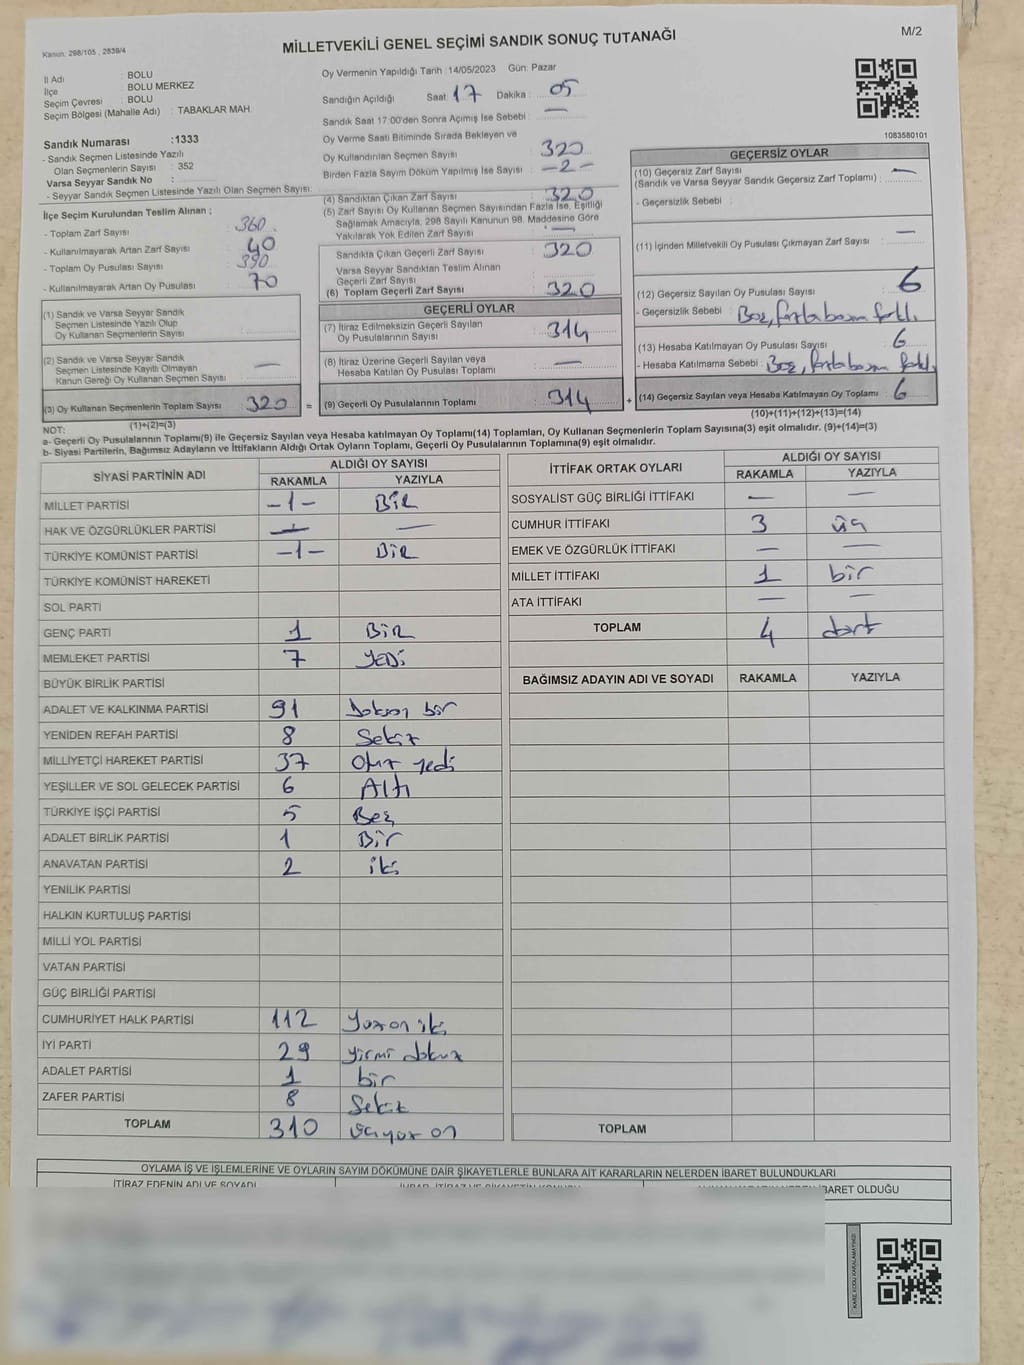 Kanun: 298/105 , 2839/4
MİLLETVEKİLİ GENEL SEÇİMİ SANDIK SONUÇ TUTANAĞI
M/2
İl Adı : BOLU
İlçe : BOLU MERKEZ
Seçim Çevresi : BOLU
Seçim Bölgesi (Mahalle Adı) : TABAKLAR MAH.
Sandık Numarası :1333
- Sandık Seçmen Listesinde Yazılı
Olan Seçmenlerin Sayısı : 352
Varsa Seyyar Sandık No :
- Seyyar Sandık Seçmen Listesinde Yazılı Olan Seçmen Sayısı:
İlçe Seçim Kurulundan Teslim Alınan ;
- Toplam Zarf Sayısı 360
- Kullanılmayarak Artan Zarf Sayısı 40
- Toplam Oy Pusulası Sayısı 390
- Kullanılmayarak Artan Oy Pusulası 70
(1) Sandık ve Varsa Seyyar Sandık
Seçmen Listesinde Yazılı Olup
Oy Kullanan Seçmenlerin Sayısı
(2) Sandık ve Varsa Seyyar Sandık
Seçmen Listesinde Kayıtlı Olmayan
Kanun Gereği Oy Kullanan Seçmen Sayısı —
(3) Oy Kullanan Seçmenlerin Toplam Sayısı 320 =
(1)+(2)=(3)
Oy Vermenin Yapıldığı Tarih :14/05/2023 Gün: Pazar
Sandığın Açıldığı Saat: 17 Dakika : 05
Sandık Saat 17:00'den Sonra Açımış İse Sebebi : —
Oy Verme Saati Bitiminde Sırada Bekleyen ve
Oy Kullandırılan Seçmen Sayısı 320
Birden Fazla Sayım Döküm Yapılmış İse Sayısı : -2-
(4) Sandıktan Çıkan Zarf Sayısı 320
(5) Zarf Sayısı Oy Kullanan Seçmen Sayısından Fazla İse, Eşitliği
Sağlamak Amacıyla, 298 Sayılı Kanunun 98. Maddesine Göre
Yakılarak Yok Edilen Zarf Sayısı : —
Sandıkta Çıkan Geçerli Zarf Sayısı 320
Varsa Seyyar Sandıktan Teslim Alınan
Geçerli Zarf Sayısı
(6) Toplam Geçerli Zarf Sayısı : 320
GEÇERLİ OYLAR
(7) İtiraz Edilmeksizin Geçerli Sayılan
Oy Pusulalarının Sayısı : 314
(8) İtiraz Üzerine Geçerli Sayılan veya
Hesaba Katılan Oy Pusulası Toplamı : —
(9) Geçerli Oy Pusulalarının Toplamı : 314 +
1083580101
GEÇERSİZ OYLAR
(10) Geçersiz Zarf Sayısı
(Sandık ve Varsa Seyyar Sandık Geçersiz Zarf Toplamı) : —
- Geçersizlik Sebebi :
(11) İçinden Milletvekili Oy Pusulası Çıkmayan Zarf Sayısı —
(12) Geçersiz Sayılan Oy Pusulası Sayısı : 6
- Geçersizlik Sebebi : Boş, fazla basım farklı
(13) Hesaba Katılmayan Oy Pusulası Sayısı : 6
- Hesaba Katılmama Sebebi : Boş, fazla basım farklı
(14) Geçersiz Sayılan veya Hesaba Katılmayan Oy Toplamı 6
(10)+(11)+(12)+(13)=(14)
NOT:
a- Geçerli Oy Pusulalarının Toplamı(9) ile Geçersiz Sayılan veya Hesaba katılmayan Oy Toplamı(14) Toplamları, Oy Kullanan Seçmenlerin Toplam Sayısına(3) eşit olmalıdır. (9)+(14)=(3)
b- Siyasi Partilerin, Bağımsız Adayların ve İttifakların Aldığı Ortak Oyların Toplamı, Geçerli Oy Pusulalarının Toplamına(9) eşit olmalıdır.
SİYASİ PARTİNİN ADI ALDIĞI OY SAYISI
RAKAMLA YAZIYLA
MİLLET PARTİSİ -1- BİR
HAK VE ÖZGÜRLÜKLER PARTİSİ — —
TÜRKİYE KOMÜNİST PARTİSİ -1- BİR
TÜRKİYE KOMÜNİST HAREKETİ
SOL PARTİ
GENÇ PARTİ 1 BİR
MEMLEKET PARTİSİ 7 YEDİ
BÜYÜK BİRLİK PARTİSİ
ADALET VE KALKINMA PARTİSİ 91 Doksan bir
YENİDEN REFAH PARTİSİ 8 Sekiz
MİLLİYETÇİ HAREKET PARTİSİ 37 Otuz yedi
YEŞİLLER VE SOL GELECEK PARTİSİ 6 Altı
TÜRKİYE İŞÇİ PARTİSİ 5 Beş
ADALET BİRLİK PARTİSİ 1 Bir
ANAVATAN PARTİSİ 2 iki
YENİLİK PARTİSİ
HALKIN KURTULUŞ PARTİSİ
MİLLİ YOL PARTİSİ
VATAN PARTİSİ
GÜÇ BİRLİĞİ PARTİSİ
CUMHURİYET HALK PARTİSİ 112 Yüzon iki
İYİ PARTİ 29 yirmi dokuz
ADALET PARTİSİ 1 bir
ZAFER PARTİSİ 8 Sekiz
TOPLAM 310 üçyüz on
İTTİFAK ORTAK OYLARI ALDIĞI OY SAYISI
RAKAMLA YAZIYLA
SOSYALİST GÜÇ BİRLİĞİ İTTİFAKI — —
CUMHUR İTTİFAKI 3 üç
EMEK VE ÖZGÜRLÜK İTTİFAKI — —
MİLLET İTTİFAKI 1 bir
ATA İTTİFAKI — —
TOPLAM 4 dört
BAĞIMSIZ ADAYIN ADI VE SOYADI RAKAMLA YAZIYLA
TOPLAM
OYLAMA İŞ VE İŞLEMLERİNE VE OYLARIN SAYIM DÖKÜMÜNE DAİR ŞİKAYETLERLE BUNLARA AİT KARARLARIN NELERDEN İBARET BULUNDUKLARI
İTİRAZ EDENİN ADI VE SOYADI
İBARET OLDUĞU